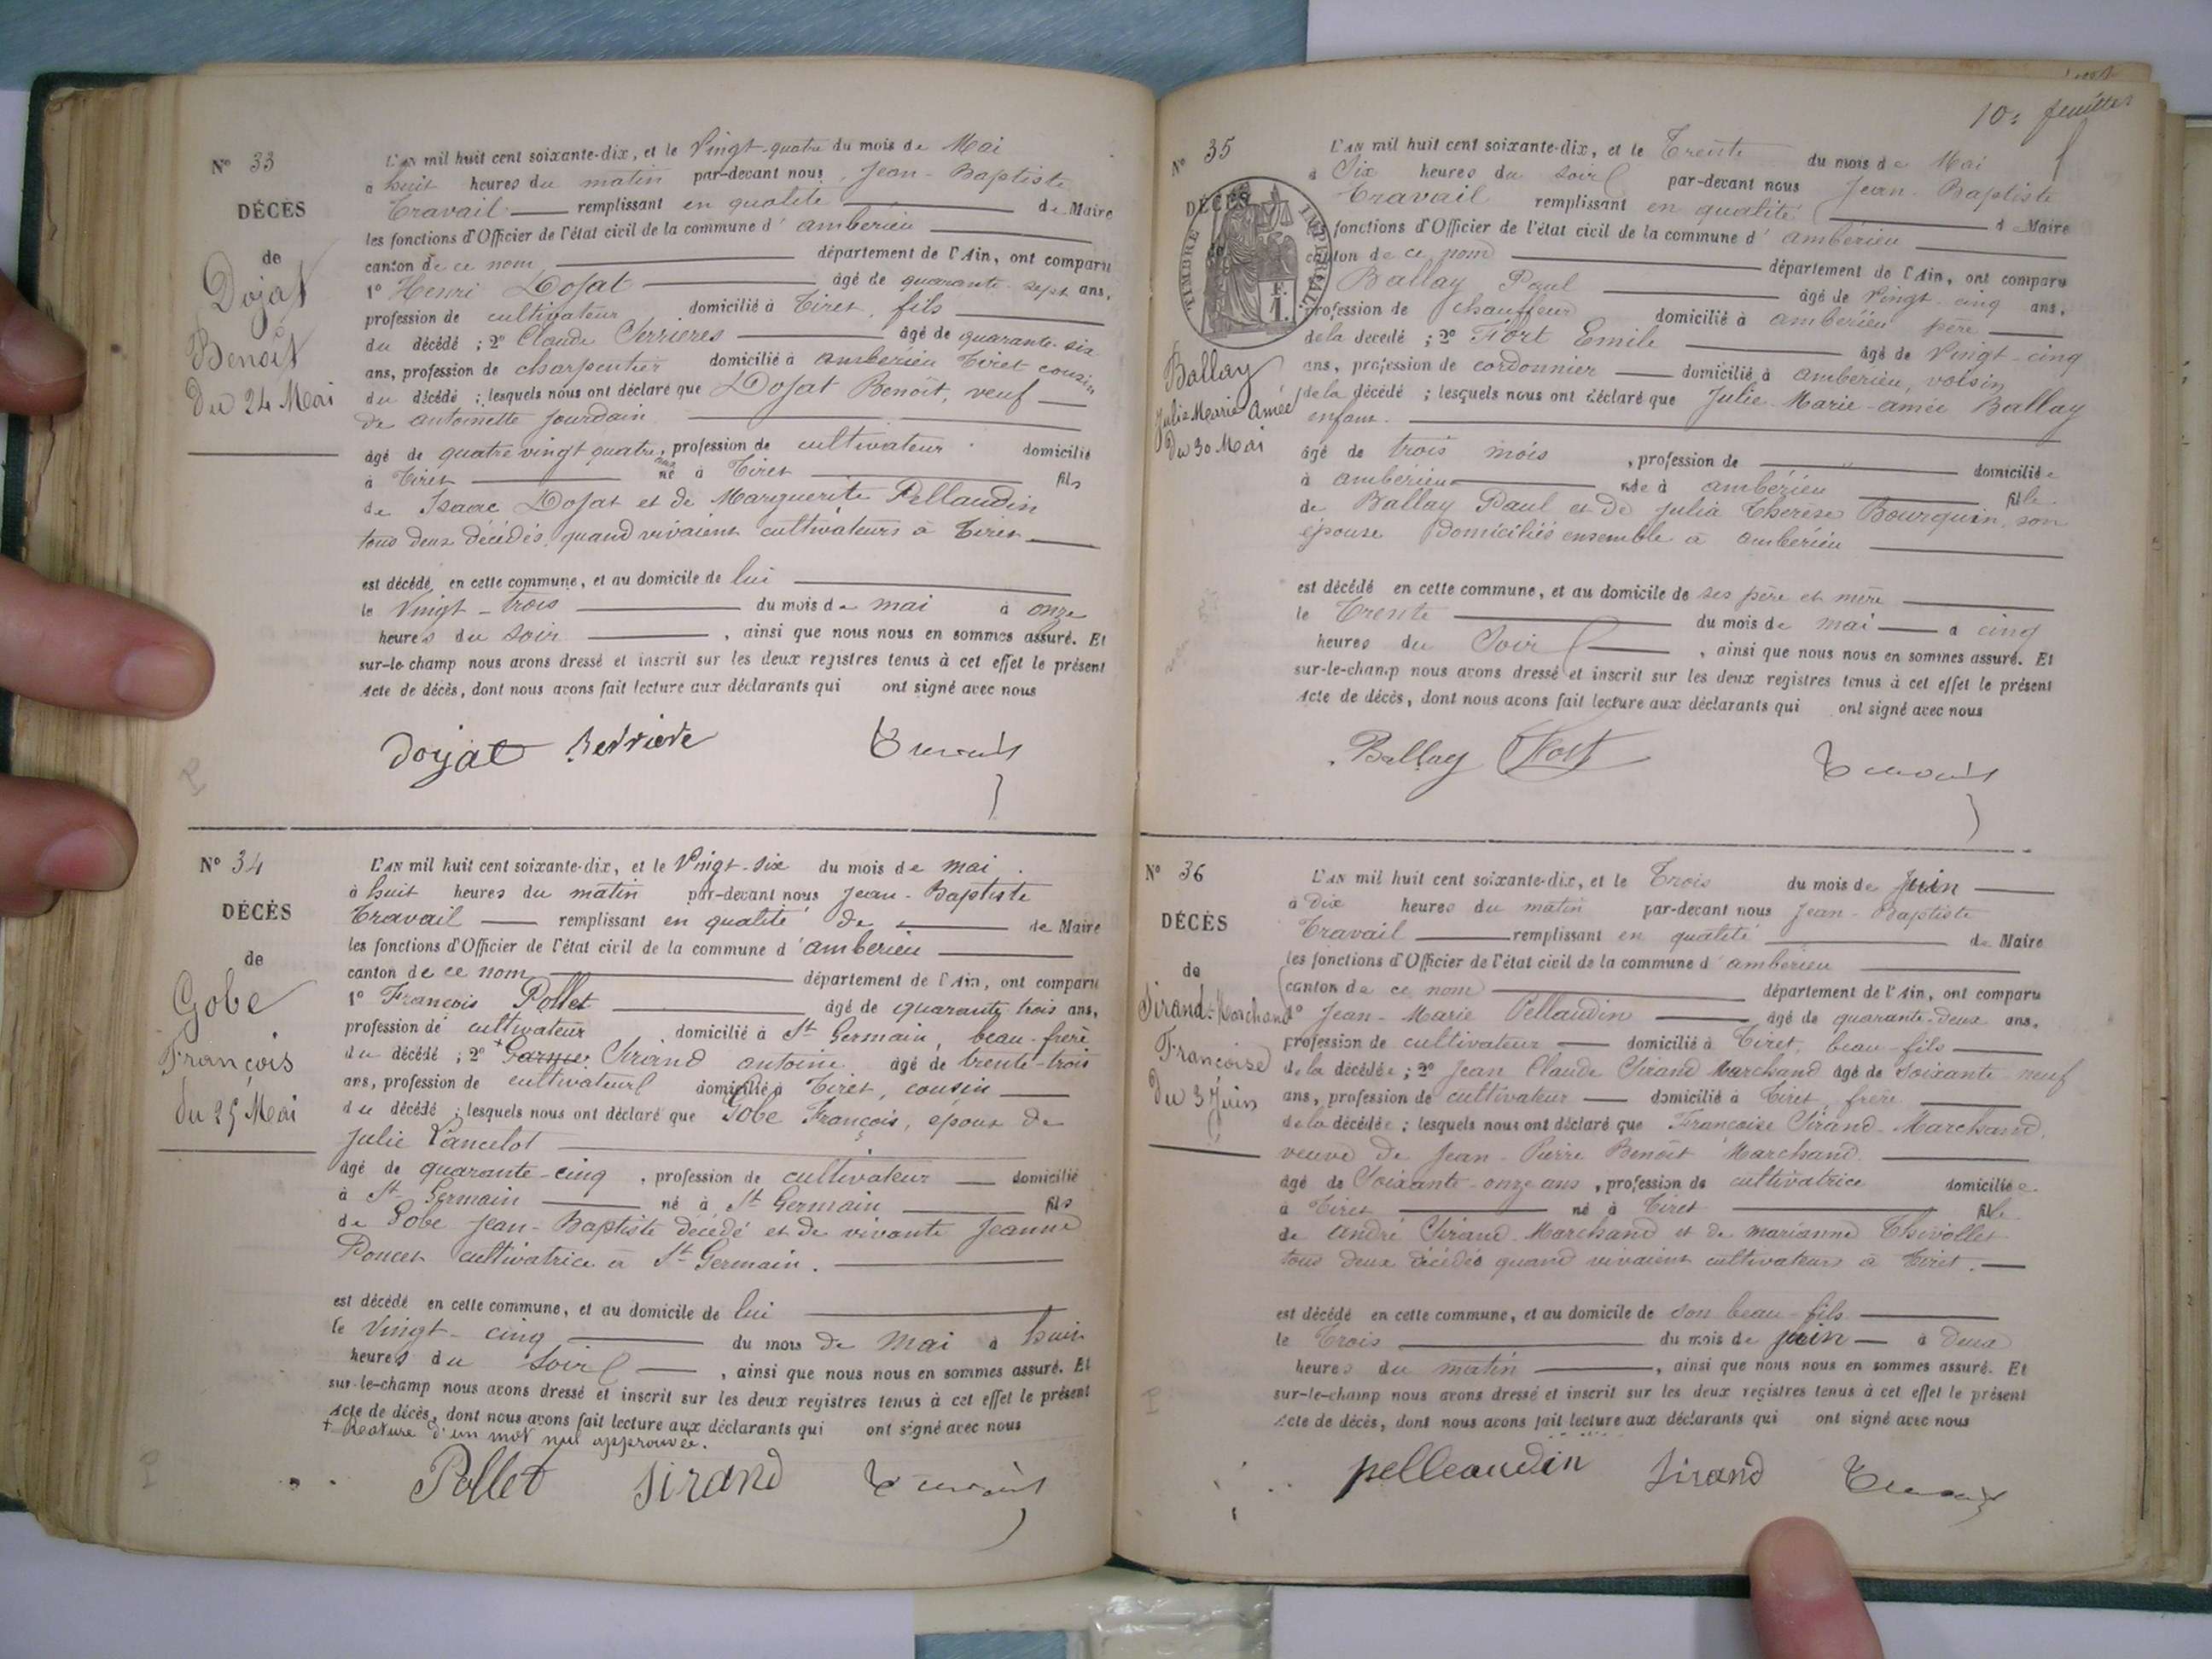 N° 33
DÉCÈS
de
Dojat
Benoît
Du 24 Mai
L'AN mil huit cent soixante-dix, et le Vingt-quatre du mois de Mai
à huit heures du matin par-devant nous Jean-Baptiste
Travail remplissant en qualité de Maire
les fonctions d'Officier de l'état civil de la commune d'ambérieu
canton de ce nom département de l'Ain, ont comparu
1° Henri Dojat âgé de quarante-sept ans,
profession de cultivateur domicilié à Tiret, fils
du décédé ; 2° Claude Ferrieres âgé de quarante-six
ans, profession de charpentier domicilié à ambérieu Tiret cousin
du décédé ; lesquels nous ont déclaré que Dojat Benoît, veuf
de antoinette Jourdain
âgé de quatre vingt quatre ans, profession de cultivateur domicilié
à Tiret né à Tiret fils
de Isaac Dojat et de Marguerite Pellaudin
tous deux décédés, quand vivaient cultivateurs à Tiret
est décédé en cette commune, et au domicile de lui
le Vingt-trois du mois de mai à onze
heures du soir , ainsi que nous nous en sommes assuré. Et
sur-le-champ nous avons dressé et inscrit sur les deux registres tenus à cet effet le présent
Acte de décès, dont nous avons fait lecture aux déclarants qui ont signé avec nous
doyat Travail
N° 34
DÉCÈS
de
Gobe
François
du 25 Mai
L'AN mil huit cent soixante-dix, et le Vingt-six du mois de mai
à huit heures du matin par-devant nous Jean-Baptiste
Travail remplissant en qualité de de Maire
les fonctions d'Officier de l'état civil de la commune d'ambérieu
canton de ce nom département de l'Ain, ont comparu
1° François Pollet âgé de quarante trois ans,
profession de cultivateur domicilié à St Germain, beau-frère
du décédé ; 2° + Sirand antoine âgé de trente-trois
ans, profession de cultivateur domicilié à Tiret, cousin
du décédé ; lesquels nous ont déclaré que Gobe François, époux de
Julie Lancelot
âgé de quarante-cinq , profession de cultivateur domicilié
à St Germain né à St Germain fils
de Gobe Jean-Baptiste décédé et de vivante Jeanne
Poncet cultivatrice à St Germain.
est décédé en cette commune, et au domicile de lui
le Vingt-cinq du mois de Mai à huit
heures du Soir , ainsi que nous nous en sommes assuré. Et
sur-le-champ nous avons dressé et inscrit sur les deux registres tenus à cet effet le présent
Acte de décès, dont nous avons fait lecture aux déclarants qui ont signé avec nous
+ Rature d'un mot nul approuvée.
Pollet Sirand Travail
10e feuillet
N° 35
DÉCÈS
de
TIMBRE IMPÉRIAL
Ballay
Julie Marie Amée
Du 30 Mai
L'AN mil huit cent soixante-dix, et le Trente du mois de Mai
à Six heures du soir par-devant nous Jean-Baptiste
Travail remplissant en qualité de Maire
les fonctions d'Officier de l'état civil de la commune d'ambérieu
canton de ce nom département de l'Ain, ont comparu
1° Ballay Paul âgé de Vingt-cinq ans,
profession de chauffeur domicilié à ambérieu père
de la décédé ; 2° Fort Emile âgé de Vingt-cinq
ans, profession de cordonnier domicilié à ambérieu, voisin
de la décédé ; lesquels nous ont déclaré que Julie-Marie-amée Ballay
enfant.
âgé de trois mois , profession de domiciliée
à ambérieu née à ambérieu fille
de Ballay Paul et de Julia Thérèse Bourquin, son
épouse domiciliés ensemble à ambérieu
est décédé en cette commune, et au domicile de ses père et mère
le Trente du mois de mai à cinq
heures du Soir , ainsi que nous nous en sommes assuré. Et
sur-le-champ nous avons dressé et inscrit sur les deux registres tenus à cet effet le présent
Acte de décès, dont nous avons fait lecture aux déclarants qui ont signé avec nous
Ballay Fort Travail
N° 36
DÉCÈS
de
Sirand-Marchand
Françoise
Du 3 Juin
L'AN mil huit cent soixante-dix, et le Trois du mois de Juin
à Dix heures du matin par-devant nous Jean-Baptiste
Travail remplissant en qualité de Maire
les fonctions d'Officier de l'état civil de la commune d'ambérieu
canton de ce nom département de l'Ain, ont comparu
1° Jean-Marie Pellaudin âgé de quarante-deux ans,
profession de cultivateur domicilié à Tiret, beau-fils
de la décédée ; 2° Jean Claude Sirand Marchand âgé de soixante neuf
ans, profession de cultivateur domicilié à Tiret, frère
de la décédée ; lesquels nous ont déclaré que Françoise Sirand-Marchand,
veuve de Jean-Pierre Benoît Marchand.
âgé de Soixante-onze ans , profession de cultivatrice domiciliée
à Tiret né à Tiret fille
de André Sirand-Marchand et de marianne Thévollet
tous deux décédés quand vivaient cultivateurs à Tiret.
est décédé en cette commune, et au domicile de son beau-fils
le Trois du mois de juin à deux
heures du matin , ainsi que nous nous en sommes assuré. Et
sur-le-champ nous avons dressé et inscrit sur les deux registres tenus à cet effet le présent
Acte de décès, dont nous avons fait lecture aux déclarants qui ont signé avec nous
pelleaudin Sirand Travail